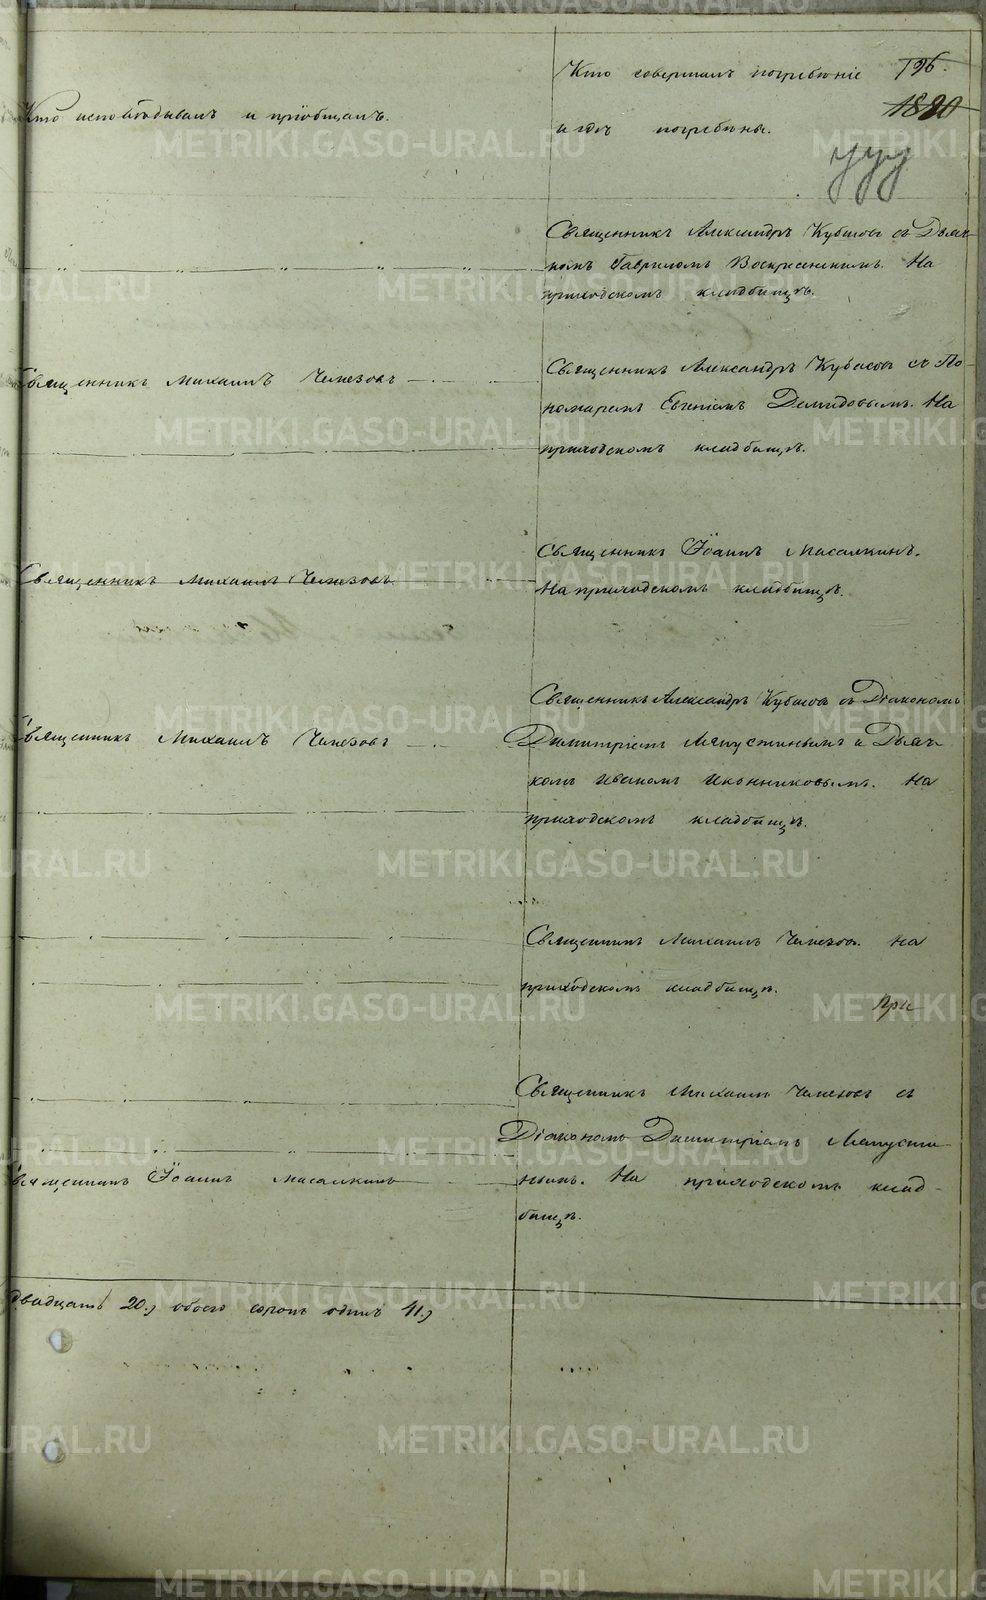 Кто исповѣдывалъ и прiобщалъ.
Кто совершалъ погребенiе 196.
1880
и гдѣ погребены.
Священникъ Александръ Кубасовъ съ Дьяч-
комъ Гаврiиломъ Воскресенскимъ. На
приходскомъ кладбищѣ.
Священникъ Михаилъ Чемезовъ
Священникъ Александръ Кубасовъ съ По-
номаремъ Евгенiемъ Демидовымъ. На
приходскомъ кладбищѣ.
Священникъ Михаилъ Чемезовъ
Священникъ Iоаннъ Масалкинъ.
На приходскомъ кладбищѣ.
Священникъ Михаилъ Чемезовъ
Священникъ Александръ Кубасовъ съ Дiакономъ
Димитрiемъ Мапустинымъ и Дьяч-
комъ Иваномъ Иконниковымъ. На
приходскомъ кладбищѣ.
Священникъ Михаилъ Чемезовъ. На
приходскомъ кладбищѣ.
При
Священникъ Михаилъ Чемезовъ съ
Дiакономъ Димитрiемъ Мапусти-
нымъ. На приходскомъ клад-
бищѣ.
Священникъ Iоаннъ Масалкинъ
двадцать 20.) обоего сорокъ одинъ 41.)
METRIKI.GASO-URAL.RU